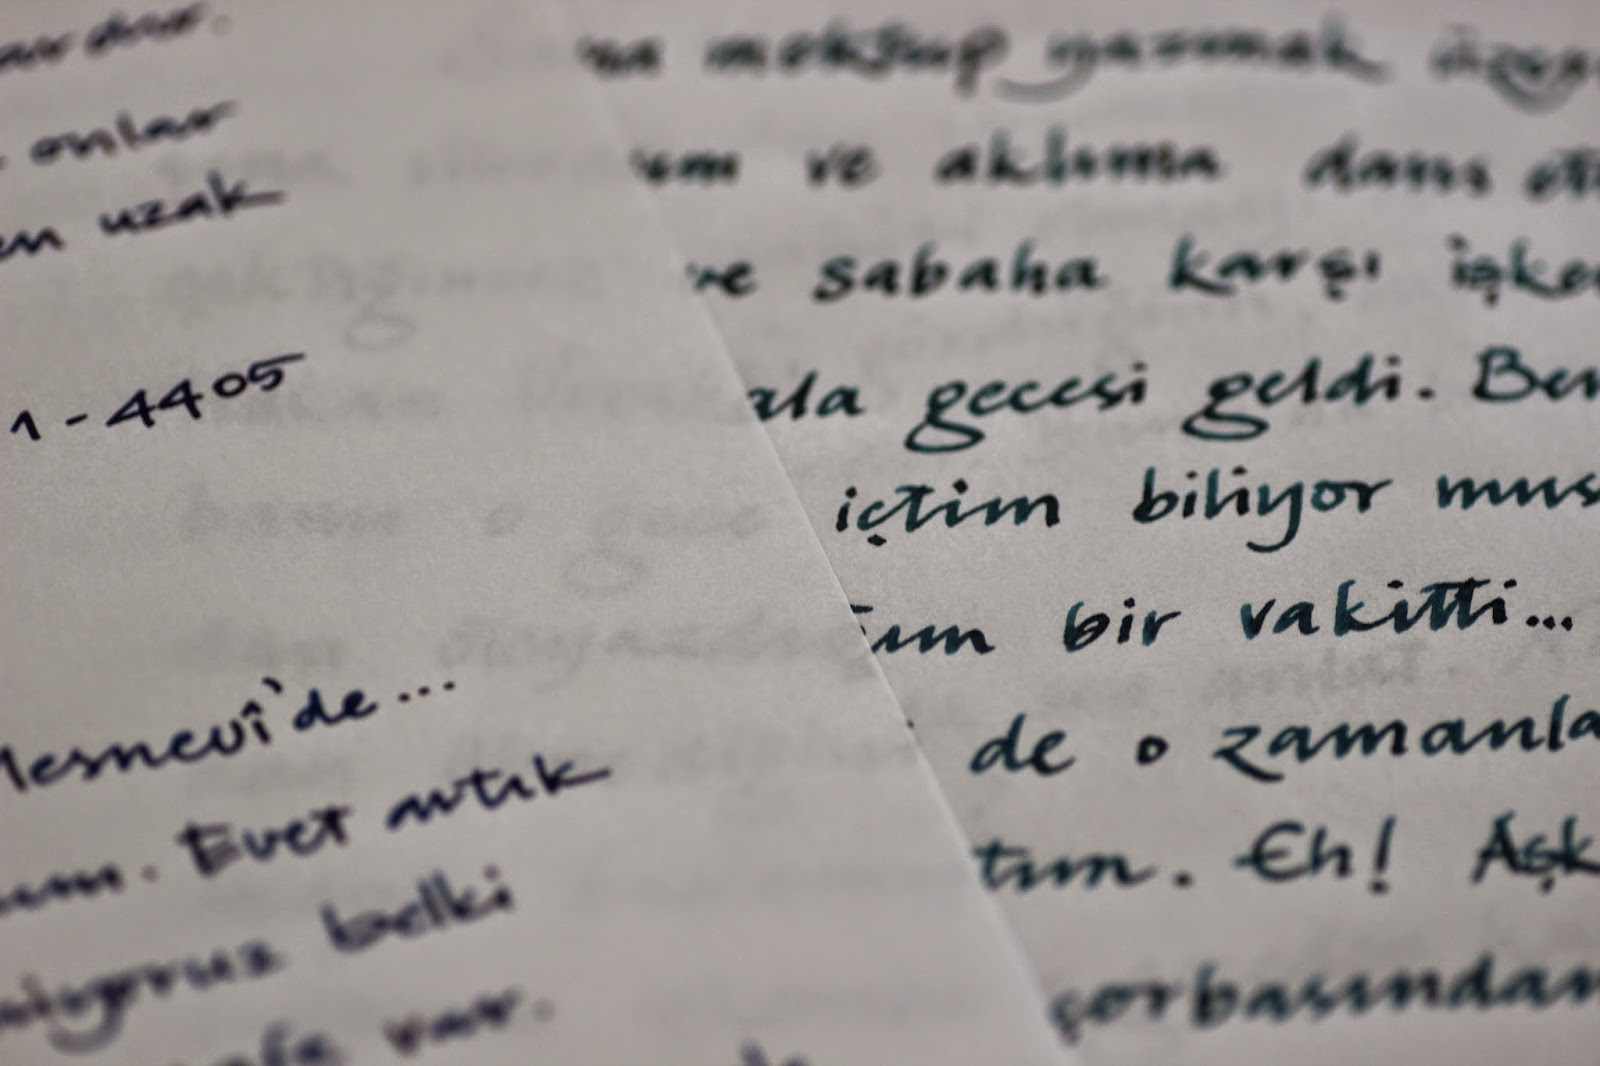 onlar
uzak
1-4405
Mesnevî'de...
Evet artık
belki
var.
mektup yazmak
ve aklıma dans
ve sabaha karşı
gecesi geldi. Ben
içtim biliyor mus
bir vakitti...
de o zamanla
tım. Eh! Aşk
çorbasından